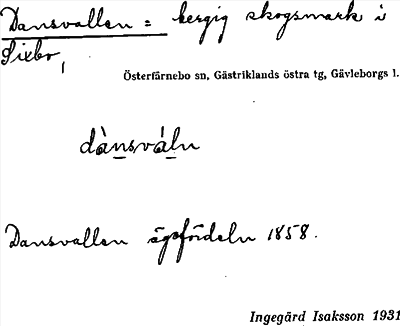 Dansvallen = bergig skogsmark i
Sixbo,
Österfärnebo sn, Gästriklands östra tg, Gävleborgs l.
dànsváln
Dansvallen ägofördeln 1858.
Ingegärd Isaksson 1931